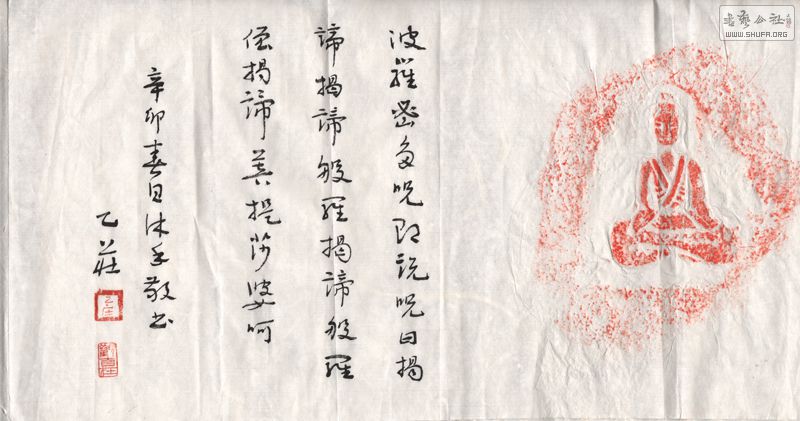 波羅密多呪即説呪曰揭
諦揭諦般羅揭諦般羅
僧揭諦菩提莎婆呵
辛卯春日沐手敬书
乙莊
書藝公社
WWW.SHUFA.ORG